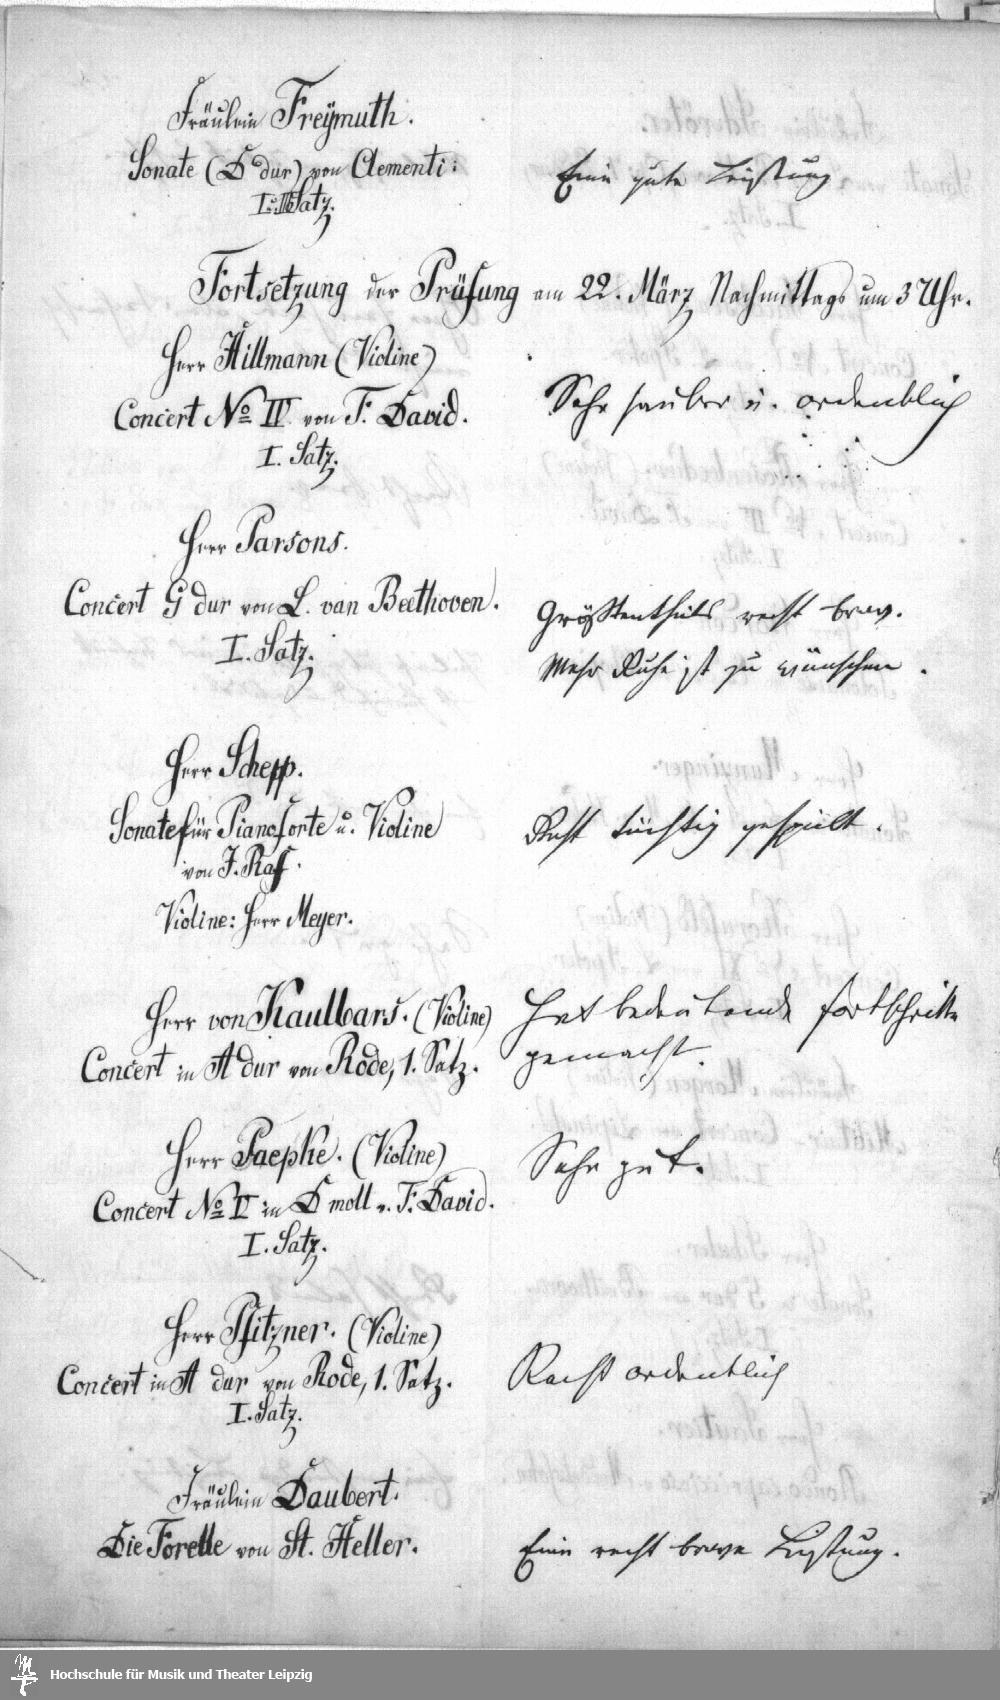 Fräulein Freymuth.
Sonate (D dur) von Clementi:
I. u. II. Satz.
Eine gute Leistung
Fortsetzung der Prüfung am 22. März Nachmittags um 3 Uhr.
Herr Hillmann (Violine)
Concert No IV von F. David.
I. Satz.
Sehr sauber u. ordentlich
Herr Parsons.
Concert G dur von L. van Beethoven.
I. Satz.
Größtentheils recht brav.
Mehr Ruhe ist zu wünschen.
Herr Schepp.
Sonate für Pianoforte u. Violine
von J. Raff.
Violine: Herr Meyer.
Recht tüchtig gespielt.
Herr von Kaulbars. (Violine)
Concert in A dur von Rode, 1. Satz.
Hat bedeutende Fortschritte
gemacht.
Herr Paepke. (Violine)
Concert No V in D moll v. F. David.
I. Satz.
Sehr gut.
Herr Pfitzner. (Violine)
Concert in A dur von Rode, 1. Satz.
I. Satz.
Recht ordentlich
Fräulein Daubert.
Die Forelle von St. Heller.
Eine recht brave Leistung.
Hochschule für Musik und Theater Leipzig